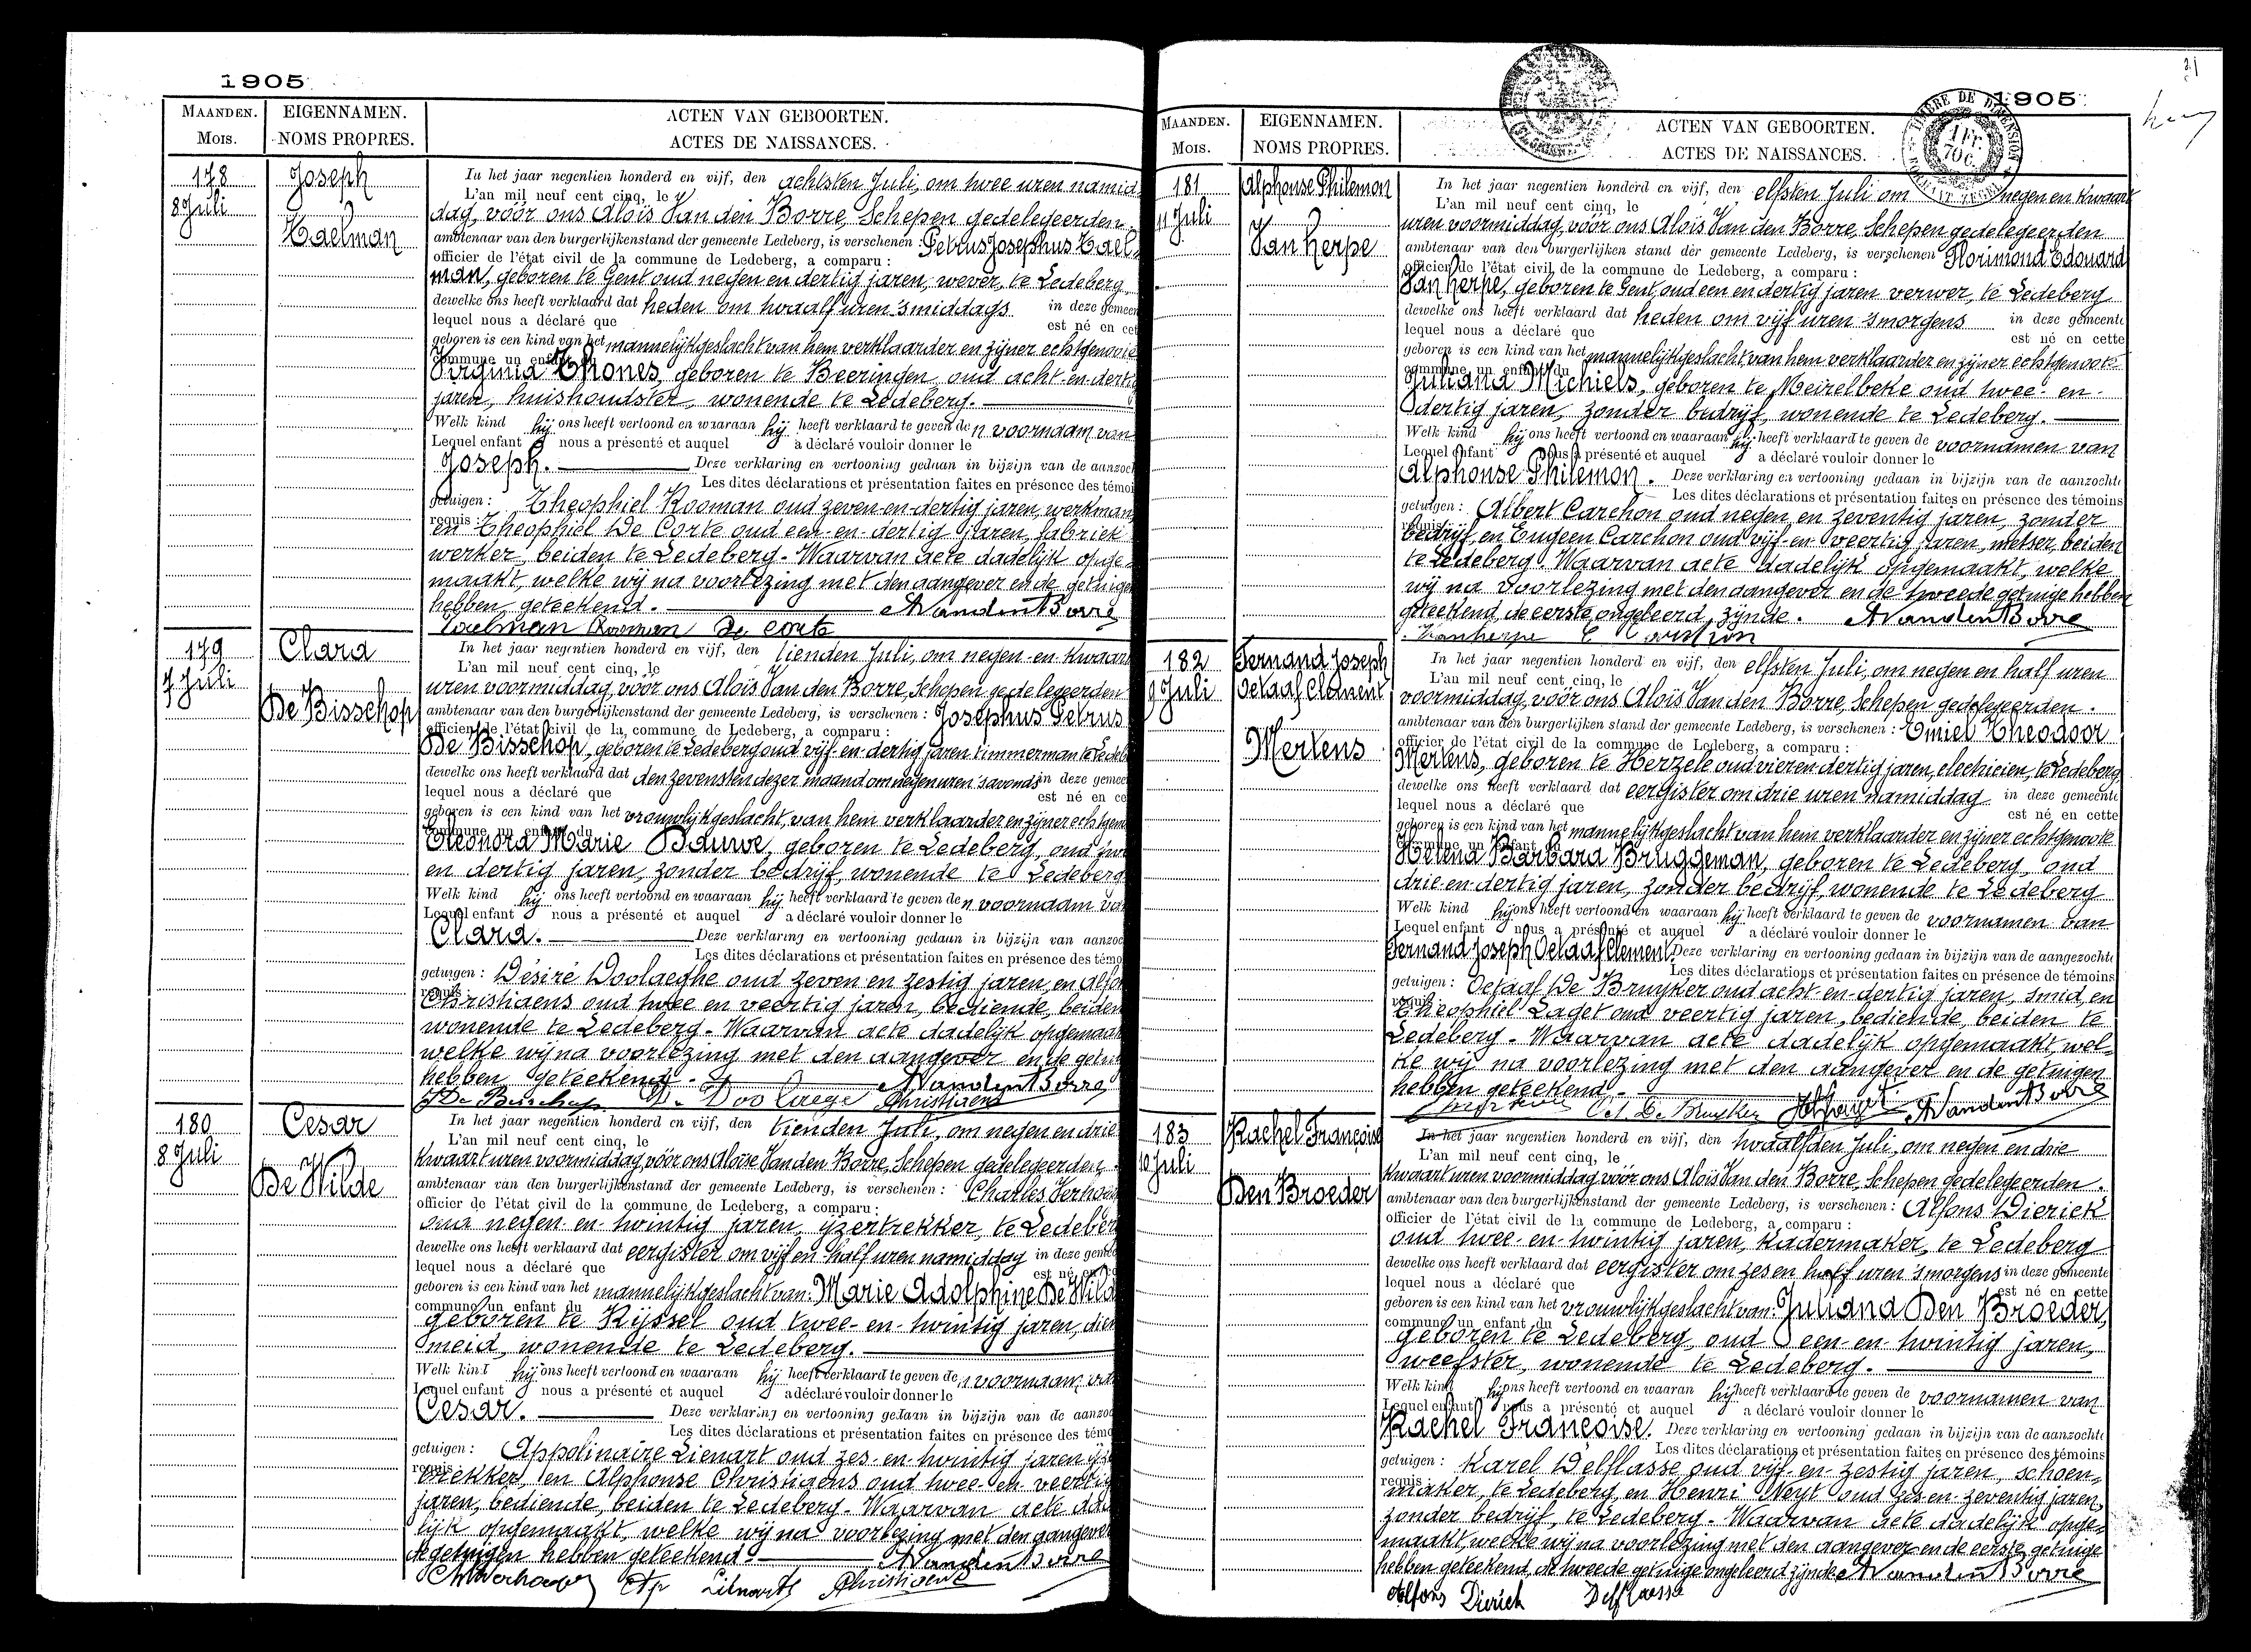 1905
MAANDEN.
Mois.
EIGENNAMEN.
NOMS PROPRES.
ACTEN VAN GEBOORTEN.
ACTES DE NAISSANCES.
178
8 Juli
Joseph
Taelman
In het jaar negentien honderd en vijf, den achtsten Juli, om twee uren namid-
L'an mil neuf cent cinq, le
dag, vóór ons Aloïs Van den Borre, Schepen gedelegeerden
ambtenaar van den burgerlijkenstand der gemeente Ledeberg, is verschenen : Petrus Josephus Tael-
officier de l'état civil de la commune de Ledeberg, a comparu :
man, geboren te Gent oud negen en dertig jaren, wever, te Ledeberg
dewelke ons heeft verklaard dat heden om twaalf uren 'smiddags in deze gemeen
lequel nous a déclaré que est né en cet
geboren is een kind van het mannelijk geslacht van hem verklaarder en zijner echtgenoote
commune un enfant du
Virginia Thones, geboren te Beeringen oud acht-en-dertig
jaren, huishoudster, wonende te Ledeberg.
Welk kind hij ons heeft vertoond en waaraan hij heeft verklaard te geven den voornaam van
Lequel enfant nous a présenté et auquel a déclaré vouloir donner le
Joseph. Deze verklaring en vertooning gedaan in bijzijn van de aanzoch
Les dites déclarations et présentation faites en présence des témoi
getuigen : Theophiel Kooman oud zeven-en-dertig jaren, werkman
requis :
en Theophiel De Corte oud een-en-dertig jaren, fabriek
werker, beiden te Ledeberg. Waarvan acte dadelijk opge-
maakt, welke wij na voorlezing met den aangever en de getuigen
hebben geteekend. AVandenBorre
Taelman Kooman De Corte
179
7 Juli
Clara
De Bisschop
In het jaar negentien honderd en vijf, den tienden Juli, om negen-en-kwaart
L'an mil neuf cent cinq, le
uren voormiddag, vóór ons Aloïs Van den Borre, Schepen gedelegeerden
ambtenaar van den burgerlijkenstand der gemeente Ledeberg, is verschenen : Josephus Petrus
officier de l'état civil de la commune de Ledeberg, a comparu :
De Bisschop, geboren te Ledeberg oud vijf-en-dertig jaren timmerman te Ledeb
dewelke ons heeft verklaard dat den zevensten dezer maand om negen uren 'savonds in deze gemee
lequel nous a déclaré que est né en ce
geboren is een kind van het vrouwlijk geslacht, van hem verklaarder en zijner echtgen
commune un enfant du
Eleonora Marie Bauwe, geboren te Ledeberg, oud twe
en dertig jaren, zonder bedrijf, wonende te Ledeberg
Welk kind hij ons heeft vertoond en waaraan hij heeft verklaard te geven den voornaam va
Lequel enfant nous a présenté et auquel a déclaré vouloir donner le
Clara. Deze verklaring en vertooning gedaan in bijzijn van aanzoc
Les dites déclarations et présentation faites en présence des témo
getuigen : Désiré Doolaeghe oud zeven en zestig jaren, en Alfon
requis :
Christiaens oud twee en veertig jaren, bediende, beiden
wonende te Ledeberg. Waarvan acte dadelijk opgemaakt
welke wij na voorlezing met den aangever en de getui
hebben geteekend. AVandenBorre
J De Bisschop D. Doolaege AChristiaens
180
8 Juli
Cesar
De Wilde
In het jaar negentien honderd en vijf, den tienden Juli, om negen en drie
L'an mil neuf cent cinq, le
kwaart uren voormiddag, vóór ons Aloïs Van den Borre, Schepen gedelegeerden
ambtenaar van den burgerlijkenstand der gemeente Ledeberg, is verschenen : Charles Verhoe
officier de l'état civil de la commune de Ledeberg, a comparu :
oud negen-en-twintig jaren, ijzertrekker, te Ledeber
dewelke ons heeft verklaard dat eergister om vijf en half uren namiddag in deze geme
lequel nous a déclaré que est né en
geboren is een kind van het mannelijk geslacht van : Marie Adolphine De Wild
commune un enfant du
geboren te Rijssel oud twee-en-twintig jaren, dien
meid, wonende te Ledeberg.
Welk kind hij ons heeft vertoond en waaraan hij heeft verklaard te geven den voornaam va
Lequel enfant nous a présenté et auquel a déclaré vouloir donner le
Cesar. Deze verklaring en vertooning gedaan in bijzijn van de aanzoc
Les dites déclarations et présentation faites en présence des témo
getuigen : Appolinaire Lienart oud zes-en-twintig jaren ijze
requis :
trekker, en Alphonse Christiaens oud twee-en-veertig
jaren, bediende, beiden te Ledeberg. Waarvan acte dad
lijk opgemaakt, welke wij na voorlezing met den aangever
de getuigen hebben geteekend. AVandenBorre
Ap Lienart AChristiaens
1905
TIMBRE DE DIMENSION
1 Fr.
70 C.
MAANDEN.
Mois.
EIGENNAMEN.
NOMS PROPRES.
ACTEN VAN GEBOORTEN.
ACTES DE NAISSANCES.
181
11 Juli
Alphonse Philemon
Van Herpe
In het jaar negentien honderd en vijf, den elfsten Juli om negen en kwaart
L'an mil neuf cent cinq, le
uren voormiddag, vóór ons Aloïs Van den Borre, Schepen gedelegeerden
ambtenaar van den burgerlijken stand der gemeente Ledeberg, is verschenen Florimond Edouard
officier de l'état civil de la commune de Ledeberg, a comparu :
Van Herpe, geboren te Gent, oud een en dertig jaren verwer, te Ledeberg
dewelke ons heeft verklaard dat heden om vijf uren 'smorgens in deze gemeente
lequel nous a déclaré que est né en cette
geboren is een kind van het mannelijk geslacht, van hem verklaarder en zijner echtgenoote
commune un enfant du
Juliana Michiels, geboren te Meirelbeke oud twee-en-
dertig jaren, zonder bedrijf, wonende te Ledeberg.
Welk kind hij ons heeft vertoond en waaraan hij heeft verklaard te geven de voornamen van
Lequel enfant nous a présenté et auquel a déclaré vouloir donner le
Alphonse Philemon. Deze verklaring en vertooning gedaan in bijzijn van de aanzochte
Les dites déclarations et présentation faites en présence des témoins
getuigen : Albert Carchon oud negen en zeventig jaren, zonder
requis :
bedrijf, en Eugeen Carchon oud vijf-en-veertig jaren, metser, beiden
te Ledeberg. Waarvan acte dadelijk opgemaakt, welke
wij na voorlezing met den aangever en de tweede getuige hebben
geteekend, de eerste ongeleerd zijnde. AVandenBorre
Vanherpe E Carchon
182
9 Juli
Fernand Joseph
Octaaf Clement
Mertens
In het jaar negentien honderd en vijf, den elfsten Juli, om negen en half uren
L'an mil neuf cent cinq, le
voormiddag, vóór ons Aloïs Van den Borre, Schepen gedelegeerden.
ambtenaar van den burgerlijken stand der gemeente Ledeberg, is verschenen : Emiel Theodoor
officier de l'état civil de la commune de Ledeberg, a comparu :
Mertens, geboren te Herzele oud vier en dertig jaren, electricien, te Ledeberg
dewelke ons heeft verklaard dat eergister om drie uren namiddag in deze gemeente
lequel nous a déclaré que est né en cette
geboren is een kind van het mannelijk geslacht van hem verklaarder en zijner echtgenoote
commune un enfant du
Helena Barbara Bruggeman, geboren te Ledeberg, oud
drie-en-dertig jaren, zonder bedrijf, wonende te Ledeberg
Welk kind hij ons heeft vertoond en waaraan hij heeft verklaard te geven de voornamen van
Lequel enfant nous a présenté et auquel a déclaré vouloir donner le
Fernand Joseph Octaaf Clement. Deze verklaring en vertooning gedaan in bijzijn van de aangezochte
Les dites déclarations et présentation faites en présence de témoins
getuigen : Octaaf De Bruyker oud acht-en-dertig jaren, smid, en
requis :
Theophiel Laget oud veertig jaren, bediende, beiden te
Ledeberg. Waarvan acte dadelijk opgemaakt, wel-
ke wij na voorlezing met den aangever en de getuigen
hebben geteekend. AVandenBorre
Oct. De Bruyker
183
10 Juli
Rachel Françoise
Den Broeder
In het jaar negentien honderd en vijf, den twaalfden Juli, om negen en drie
L'an mil neuf cent cinq, le
kwaart uren voormiddag vóór ons Aloïs Van den Borre, Schepen gedelegeerden.
ambtenaar van den burgerlijkenstand der gemeente Ledeberg, is verschenen : Alfons Dierick
officier de l'état civil de la commune de Ledeberg, a comparu :
oud twee-en-twintig jaren, kadermaker, te Ledeberg
dewelke ons heeft verklaard dat eergister om zes en half uren 'smorgens in deze gemeente
lequel nous a déclaré que est né en cette
geboren is een kind van het vrouwlijk geslacht van : Juliana Den Broeder,
commune un enfant du
geboren te Ledeberg, oud een-en-twintig jaren,
weefster, wonende te Ledeberg.
Welk kind hij ons heeft vertoond en waaran hij heeft verklaard te geven de voornamen van
Lequel enfant nous a présenté et auquel a déclaré vouloir donner le
Rachel Françoise. Deze verklaring en vertooning gedaan in bijzijn van de aanzochte
Les dites déclarations et présentation faites en présence des témoins
getuigen : Karel Delflasse oud vijf-en-zestig jaren, schoen-
requis :
maker, te Ledeberg, en Henri Weyt oud zes-en-zeventig jaren,
zonder bedrijf, te Ledeberg. Waarvan acte dadelijk opge-
maakt, welke wij na voorlezing met den aangever en de eerste getuige
hebben geteekend, de tweede getuige ongeleerd zijnde AVandenBorre
Alfons Dierick Delflasse